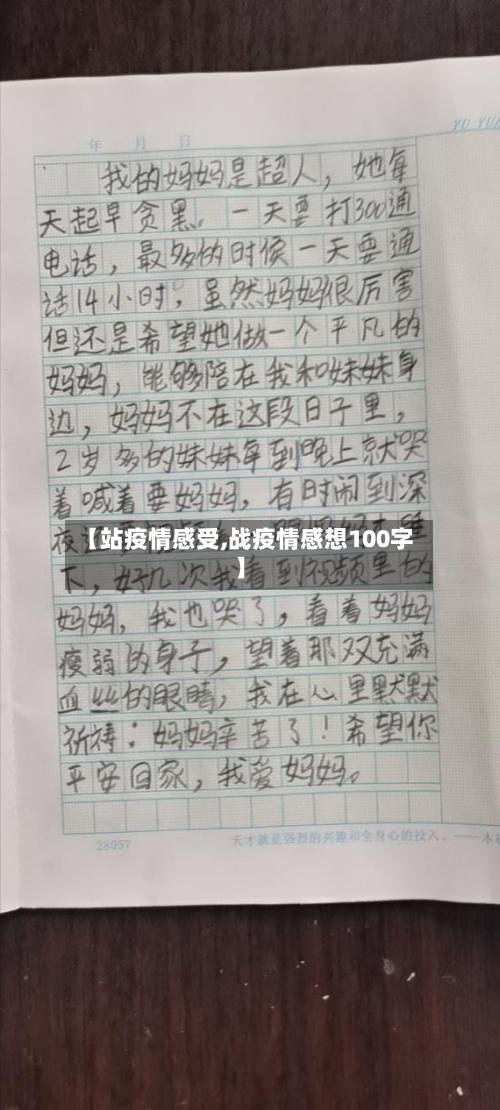 YU YU
年 月 日
我的妈妈是超人，她每
天起早贪黑。一天要打300通
电话，最多的时候一天要通
话14小时，虽然妈妈很厉害
但还是希望她做一个平凡的
妈妈，能够陪在我和妹妹身
边，妈妈不在这段日子里，
2岁多的妹妹每到晚上就哭
着喊着要妈妈，有时闹到深
夜
【站疫情感受,战疫情感想100字
】
下，好几次我看到视频里的
妈妈，我也哭了，看着妈妈
瘦弱的身子，望着那双充满
血丝的眼睛，我在心里默默
祈祷：妈妈辛苦了！希望你
平安回家，我爱妈妈。
28057 天才就是强烈的兴趣和全身心的投入。——木